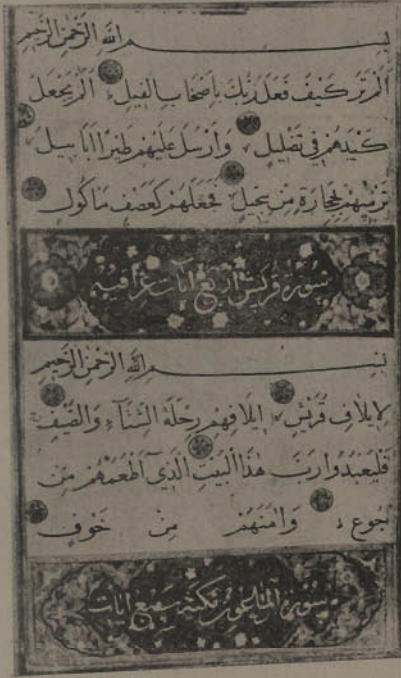 بسم الله الرحمن الرحيم
الم تر كيف فعل ربك باصحاب الفيل الم يجعل
كيدهم في تضليل وارسل عليهم طيرا ابابيل
ترميهم بحجارة من سجيل فجعلهم كعصف ماكول
سورة قريش اربع ايات
بسم الله الرحمن الرحيم
لايلاف قريش ايلافهم رحلة الشتاء والصيف
فليعبدوا رب هذا البيت الذي اطعمهم من
جوع وامنهم من خوف
سورة الماعون مكية سبع ايات